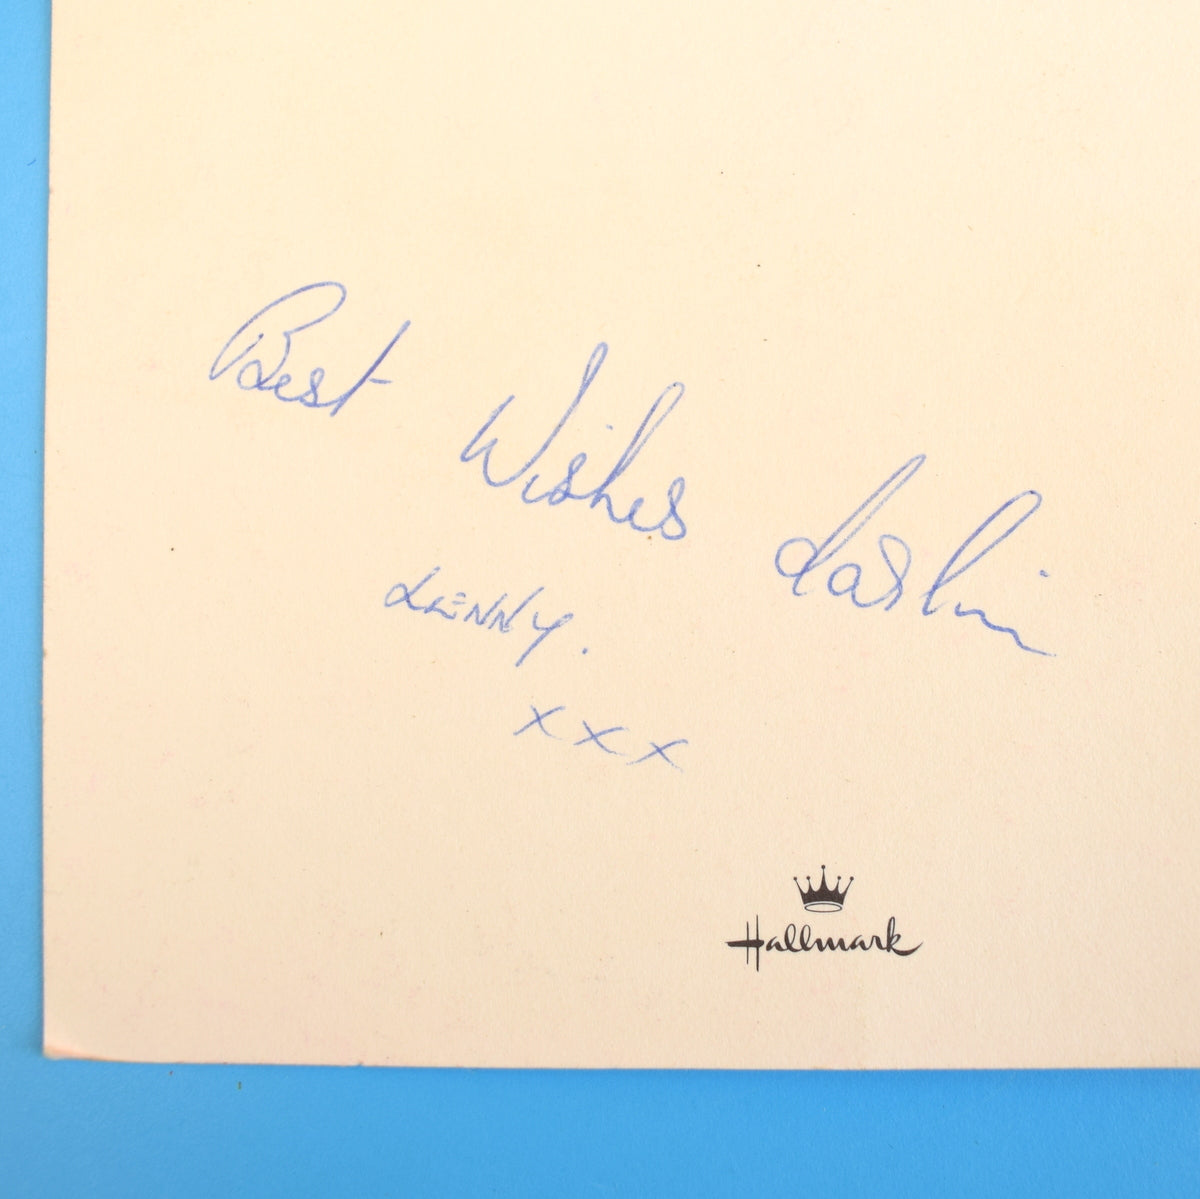 Best Wishes darlin
LENNY.
xxx
Hallmark